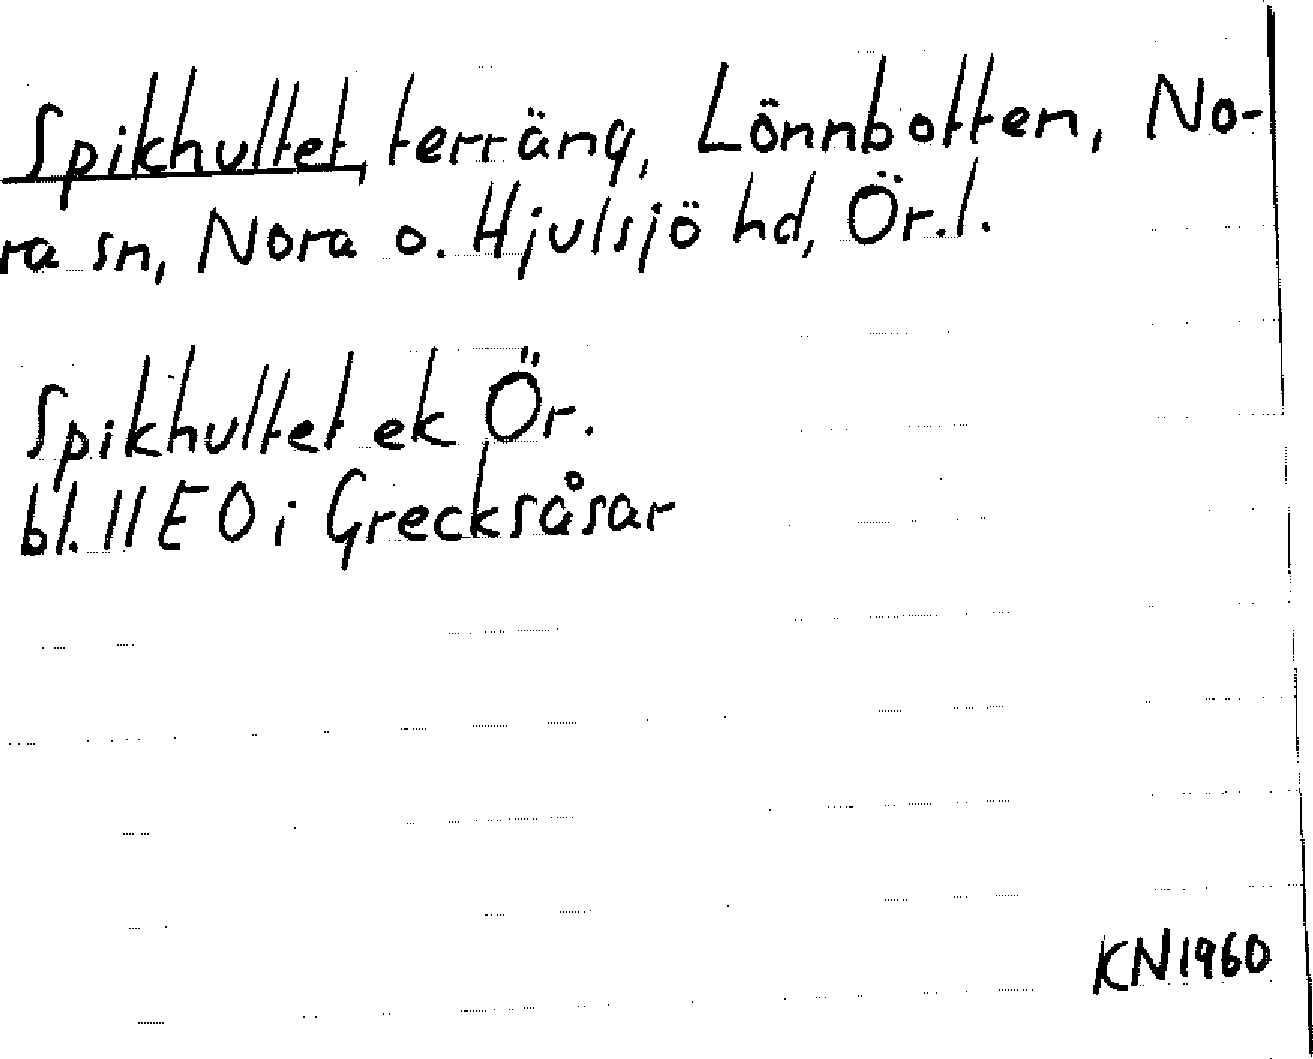 Spikhultet, terräng, Lönnbotten, No-
ra sn, Nora o. Hjulsjö hd, Ör.l.
Spikhultet ek Ör.
bl. 11E0 i Grecksåsar
KN1960